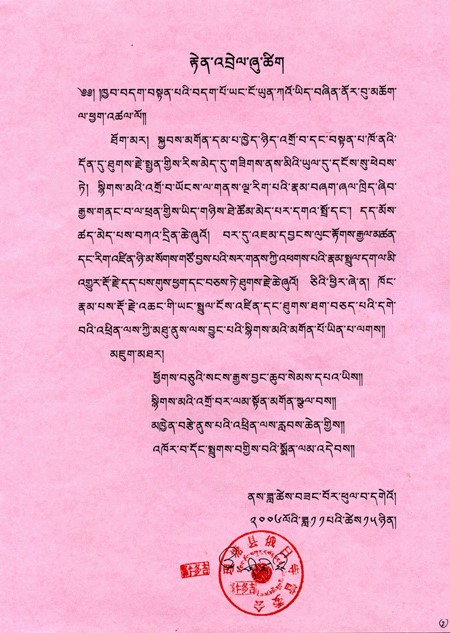 རྟེན་འབྲེལ་ཞུ་ཚིག
༄༅། །ཁྱབ་བདག་བསྟན་པའི་བདག་པོ་ཡང་ངོ་ཡུན་ཀའོ་ཡིད་བཞིན་ནོར་བུ་མཆོག
ལ་ཕྱག་འཚལ་ལོ།།
ཐོག་མར། སྐྱབས་མགོན་དམ་པ་ཁྱེད་ཉིད་འགྲོ་བ་དང་བསྟན་པ་ཁོ་ནའི་
དོན་དུ་ཐུགས་རྗེ་སྤྱན་གྱིས་རིས་མེད་དུ་གཟིགས་ནས་མིའི་ཡུལ་དུ་དངོས་སུ་ཕེབས་
ཏེ། སྙིགས་མའི་འགྲོ་བ་ཡོངས་ལ་གནས་ལྔ་རིག་པའི་རྣམ་བཞག་ཞལ་ཁྲིད་ཞིབ་
རྒྱས་གནང་བ་ལ་ཕྲན་གྱིས་ཡིད་གཉིས་ཐེ་ཚོམ་མེད་པར་དགའ་སྤྲོ་དང་། དད་མོས་
ཚད་མེད་པས་བཀའ་དྲིན་ཆེ་ཞུའོ། བར་དུ་འཇམ་དབྱངས་ལུང་རྟོགས་རྒྱལ་མཚན་
དང་རིག་འཛིན་ཉི་མ་སོགས་གཙོ་བྱས་པའི་སར་གནས་ཀྱི་འཕགས་པའི་རྣམ་སྤྲུལ་དག་ལ་མི་
འགྱུར་རྡོ་རྗེ་དད་པས་གུས་ཕྱག་དང་བཅས་ཏེ་ཐུགས་རྗེ་ཆེ་ཞུའོ། ཅིའི་ཕྱིར་ཞེ་ན། ཁོང་
རྣམ་པས་རྡོ་རྗེ་འཆང་གི་ཡང་སྤྲུལ་ངོས་འཛིན་དང་ཐུགས་ཐག་བཅད་པའི་དགེ་
བའི་འཕྲིན་ལས་ཀྱི་མཐུ་ནུས་ལས་བྱུང་བའི་སྙིགས་མའི་མགོན་པོ་ཡིན་པ་ལགས།།
མཇུག་མཐར།
ཕྱོགས་བཅུའི་སངས་རྒྱས་བྱང་ཆུབ་སེམས་དཔའ་ཡིས།།
སྙིགས་མའི་འགྲོ་བར་ལམ་སྟོན་མགོན་སྩལ་བས།།
མཁྱེན་བརྩེ་ནུས་པའི་འཕྲིན་ལས་རླབས་ཆེན་གྱིས།།
འཁོར་བ་དོང་སྤྲུགས་བགྱིས་བའི་སྨོན་ལམ་འདེབས།།
ནས་ཟླ་ཚེས་བཟང་པོར་ཕུལ་བ་དགེའོ།
༢༠༠༦ལོའི་ཟླ་༡༡པའི་ཚེས་༡༥ཉིན།